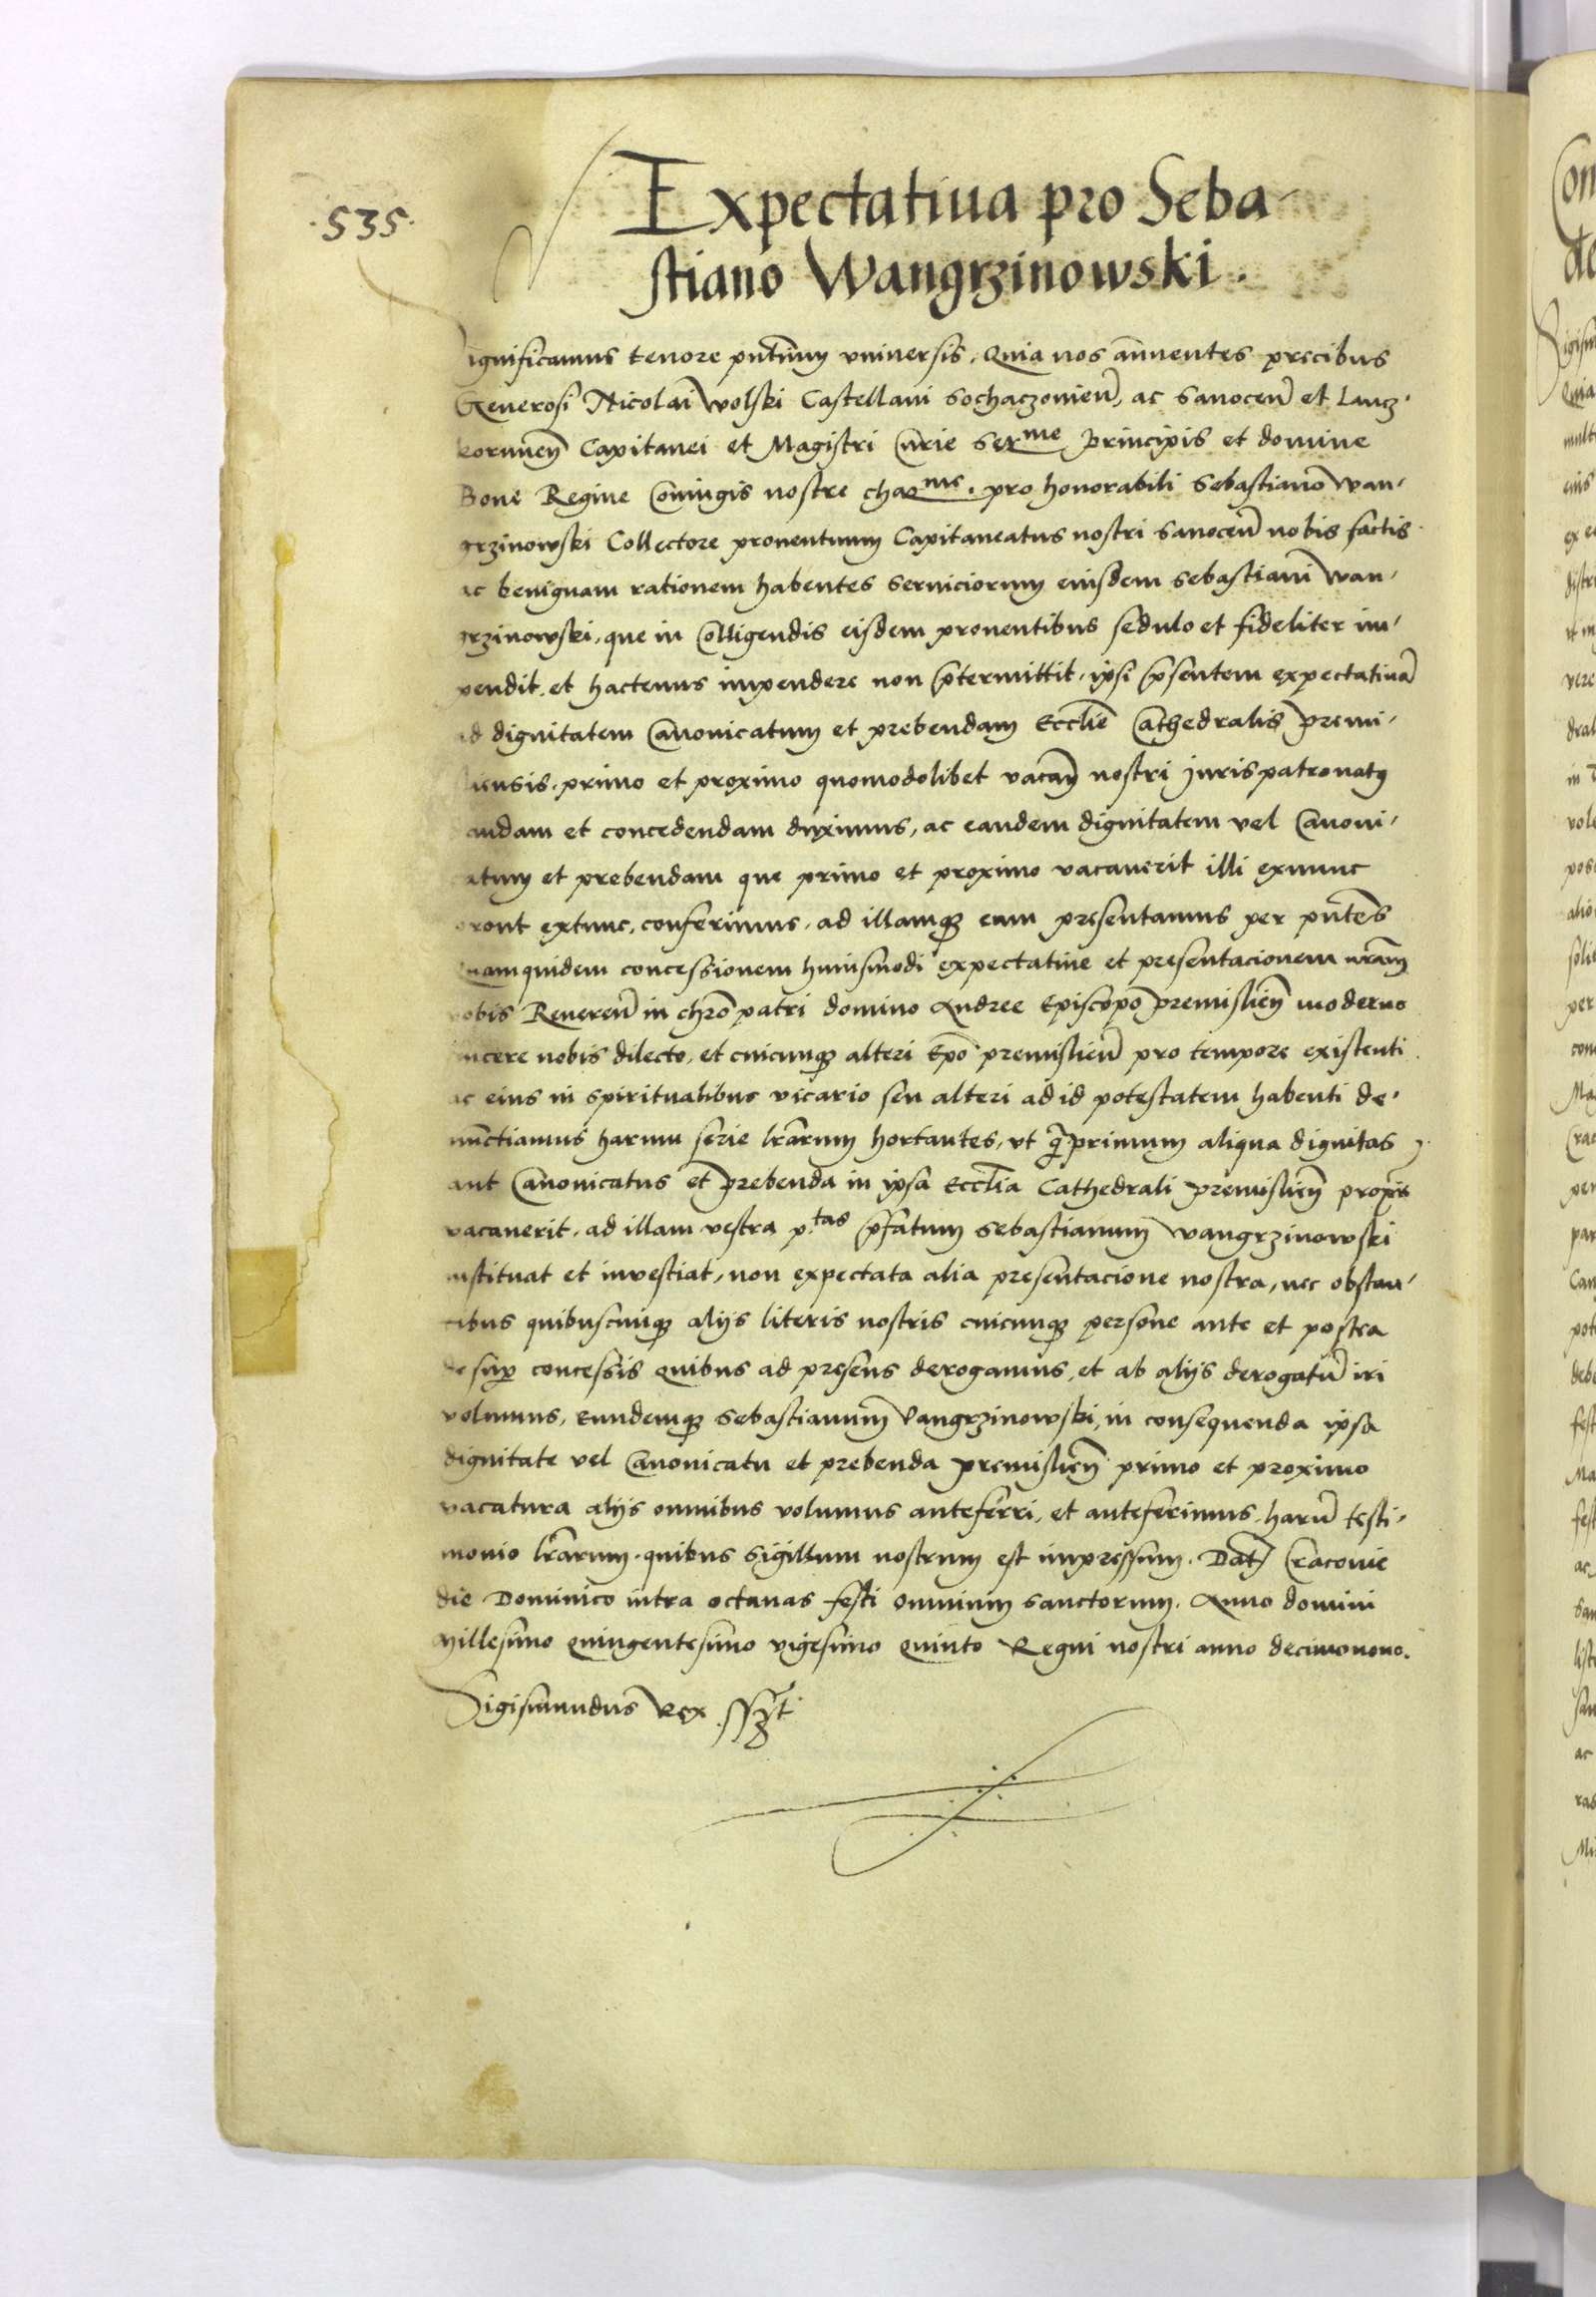 ·535·
Expectatiua pro Seba-
stiano Wangrzinowski.
ignificamus tenore pñtium vniuersis. Quia nos annuentes precibus
Generosi Nicolai Wolski Castellani Sochaczouieñ, ac Sanoceñ et Lancz-
korunieñ Capitanei et Magistri Curie Ser^me Principis et domine
Bone Regine Coniugis nostre char^me. pro honorabili Sebastiano Wan-
grzinowski Collectore prouentuum Capitaneatus nostri Sanoceñ nobis factis
ac benignam rationem habentes seruiciorum eiusdem Sebastiani Wan-
grzinowski, que in colligendis eisdem prouentibus sedulo et fideliter im-
pendit, et hactenus impendere non p̃termittit, ipsi p̃sentem expectatiuã
ad dignitatem Canonicatum et prebendam Ecctie Cathedralis Premi-
liensis. primo et proximo quomodolibet vacañ nostri iurispatronatꝰ
dandam et concedendam duximus, ac eandem dignitatem vel Canoni-
catum et prebendam que primo et proximo vacauerit illi exnunc
pront extunc, conferimus, ad illamqꝫ eum presentamus per pñtes
Quamquidem concessionem huiusmodi expectatiue et presentacionem nrãm
vobis Reuereñ in chrõ patri domino Andree Episcopo Premislieñ moderno
sincere nobis dilecto, et cuicunqꝫ alteri Epõ premislieñ pro tempore existenti
ac eius in spiritualibus vicario seu alteri ad id potestatem habenti de-
nunctiamus harum serie lrarum hortantes, vt q̃primum aliqua dignitas
aut Canonicatus et prebenda in ipsa Ecctia Cathedrali premislieñ
vacauerit. ad illam vestra p.^tas p̃fatum Sebastianum Wangrzinowski
instituat et inuestiat, non expectata alia presentacione nostra, nec obstan-
tibus quibuscunqꝫ alijs literis nostris cuicunqꝫ persone ante et postea
desup̃ concessis quibus ad presens derogamus, et ab alijs derogatũ iri
volumus, Eundemqꝫ Sebastianum Vangrzinowski, in consequenda ipsa
dignitate vel Canonicatu et prebenda premislieñ primo et proximo
vacatura alijs omnibus volumus anteferri, et anteferimus, harũ testi-
monio lrarum. quibus Sigillum nostrum est impressum. Dat Cracouie
die Dominico intra octauas festi Omnium Sanctorum. Anno domini
Millesimo Quingentesimo vigesimo Quinto Regni nostri anno decimonono.
Sigismundus Rex sszt